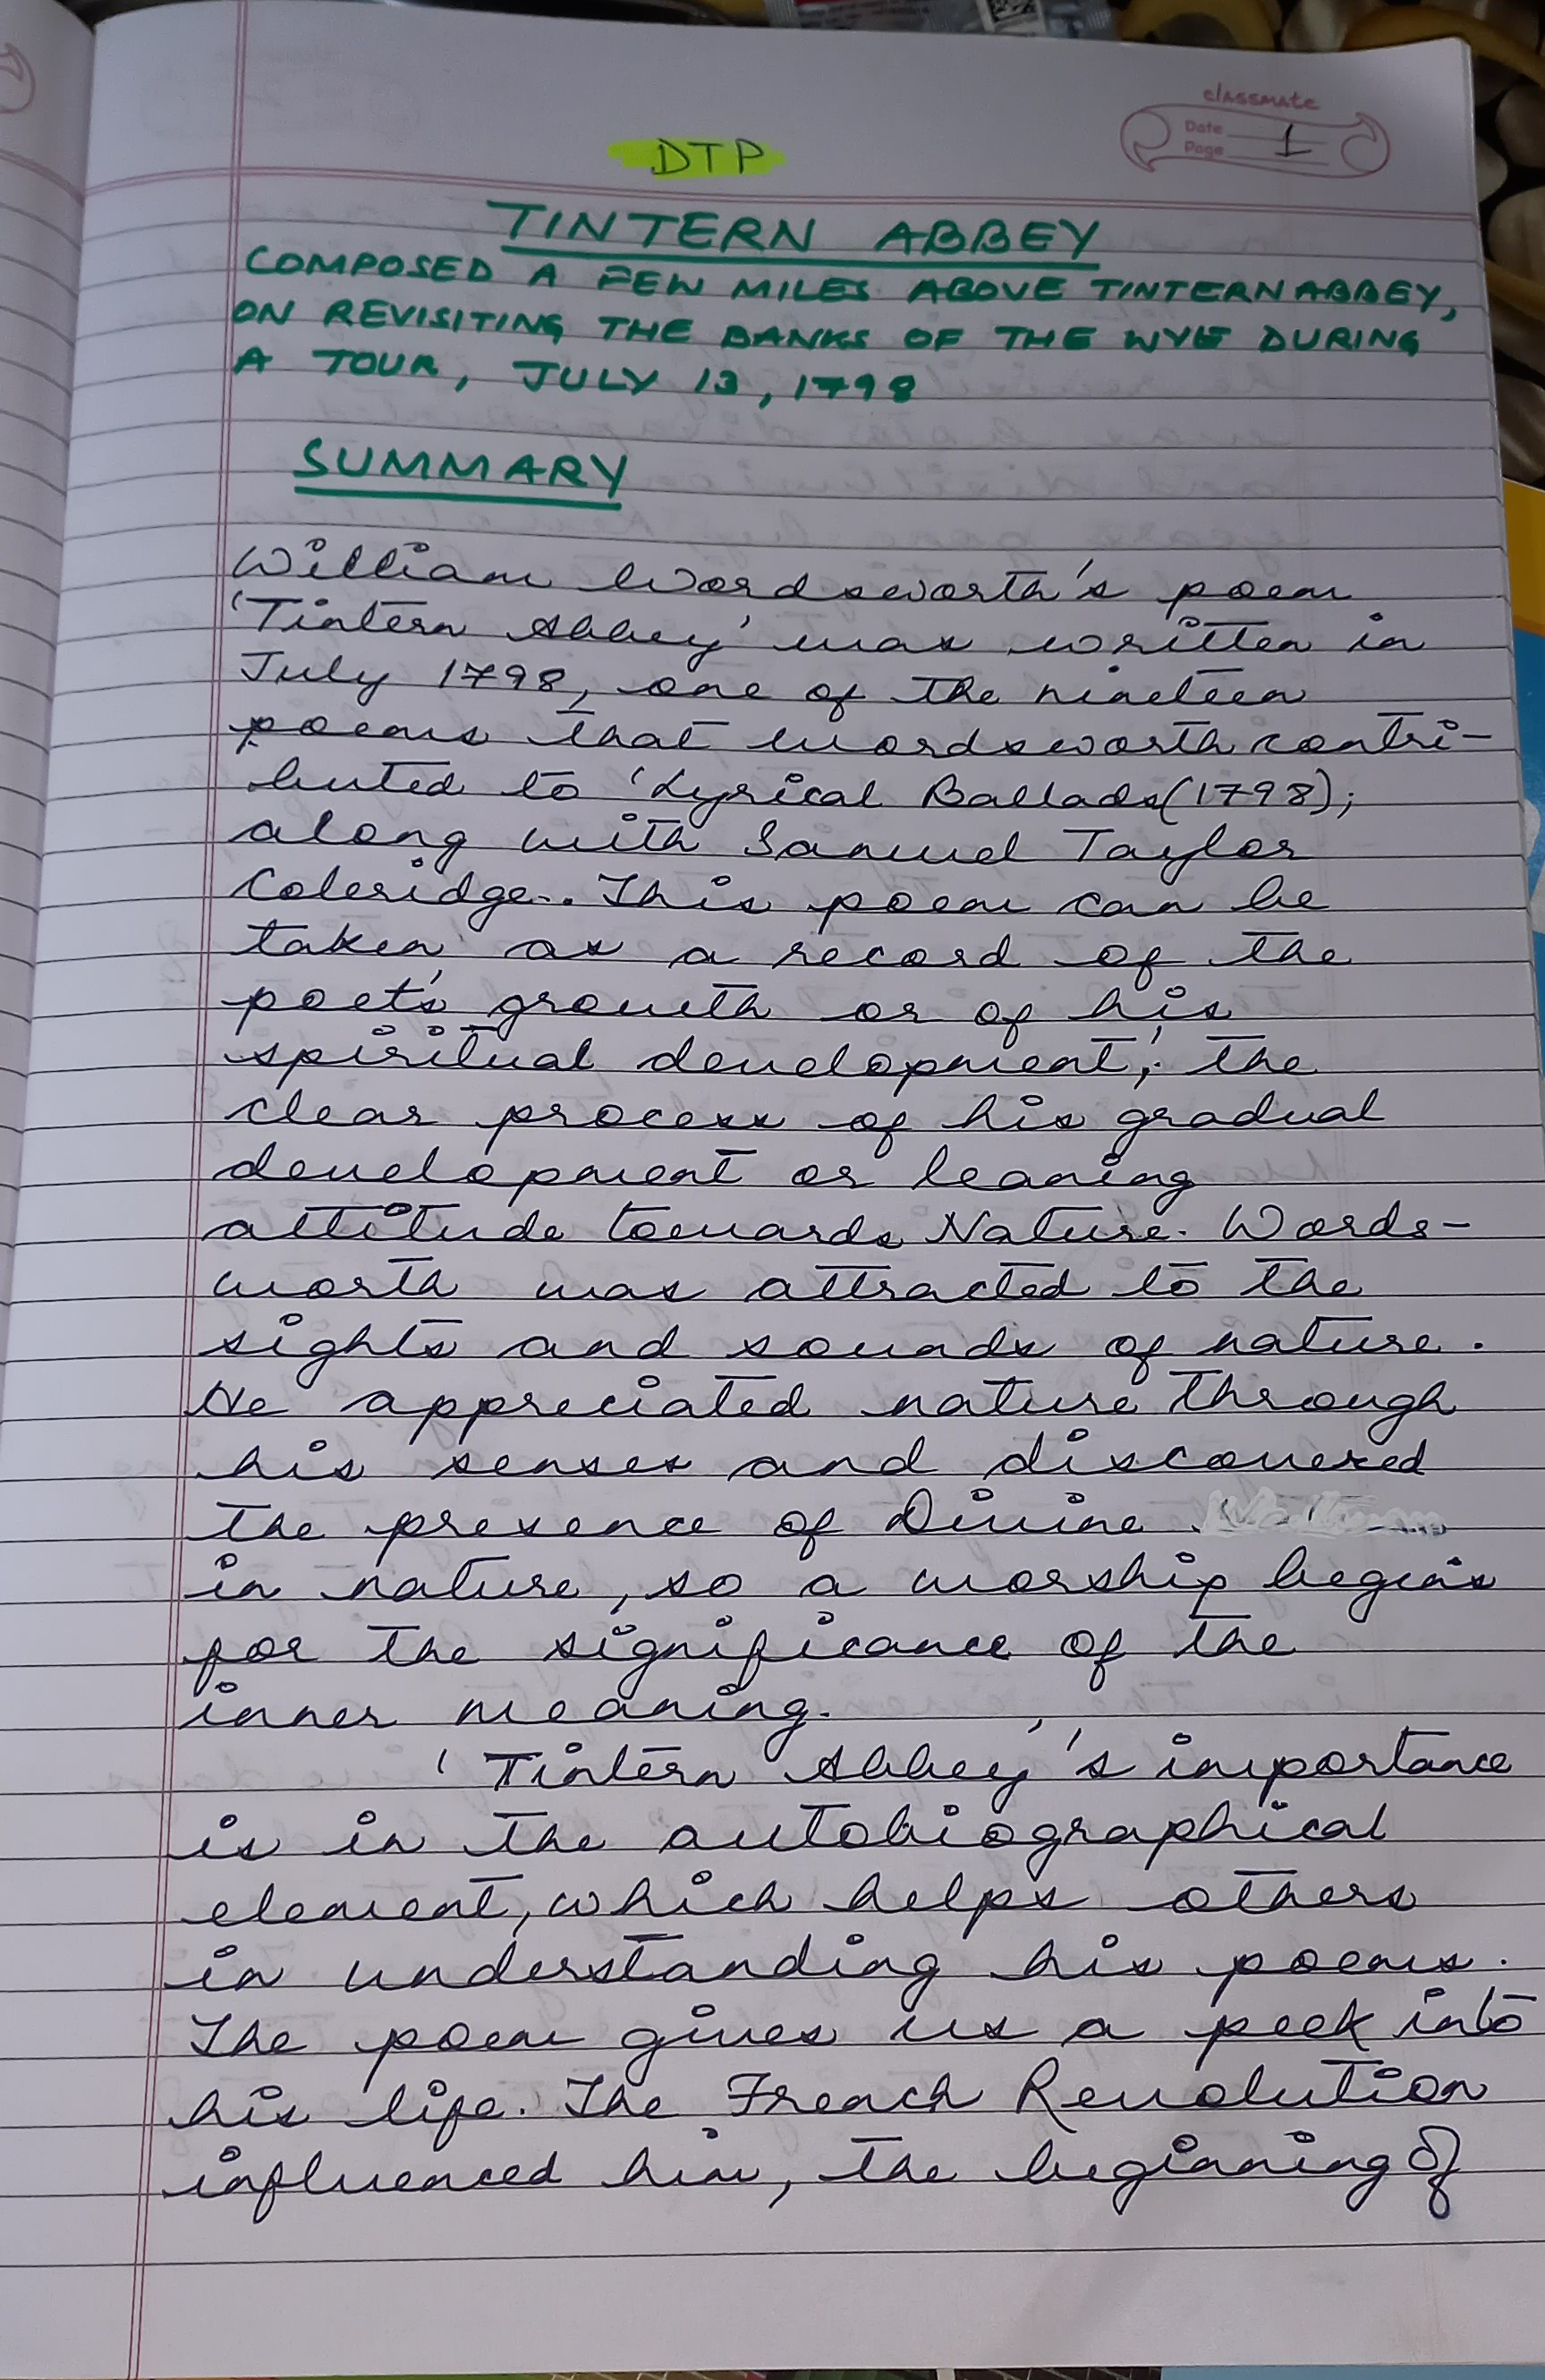 classmate
Date
Page 1
DTP
TINTERN ABBEY
COMPOSED A FEW MILES ABOVE TINTERN ABBEY,
ON REVISITING THE BANKS OF THE WYE DURING
A TOUR, JULY 13, 1798
SUMMARY
William Wordsworth's poem
'Tintern Abbey' was written in
July 1798, one of the nineteen
poems that wordsworth contri-
buted to 'Lyrical Ballads(1798);
along with Samuel Taylor
Coleridge.. This poem can be
taken as a record of the
poet's growth or of his
spiritual development; the
clear process of his gradual
development or leaning
attitude towards Nature. Words-
worth was attracted to the
sights and sounds of nature.
He appreciated nature through
his senses and discovered
the presence of Divine
in nature, so a worship begins
for the significance of the
inner meaning.
'Tintern Abbey's importance
is in the autobiographical
element, which helps others
in understanding his poems.
The poem gives us a peek into
his life. The French Revolution
influenced him, the beginning of